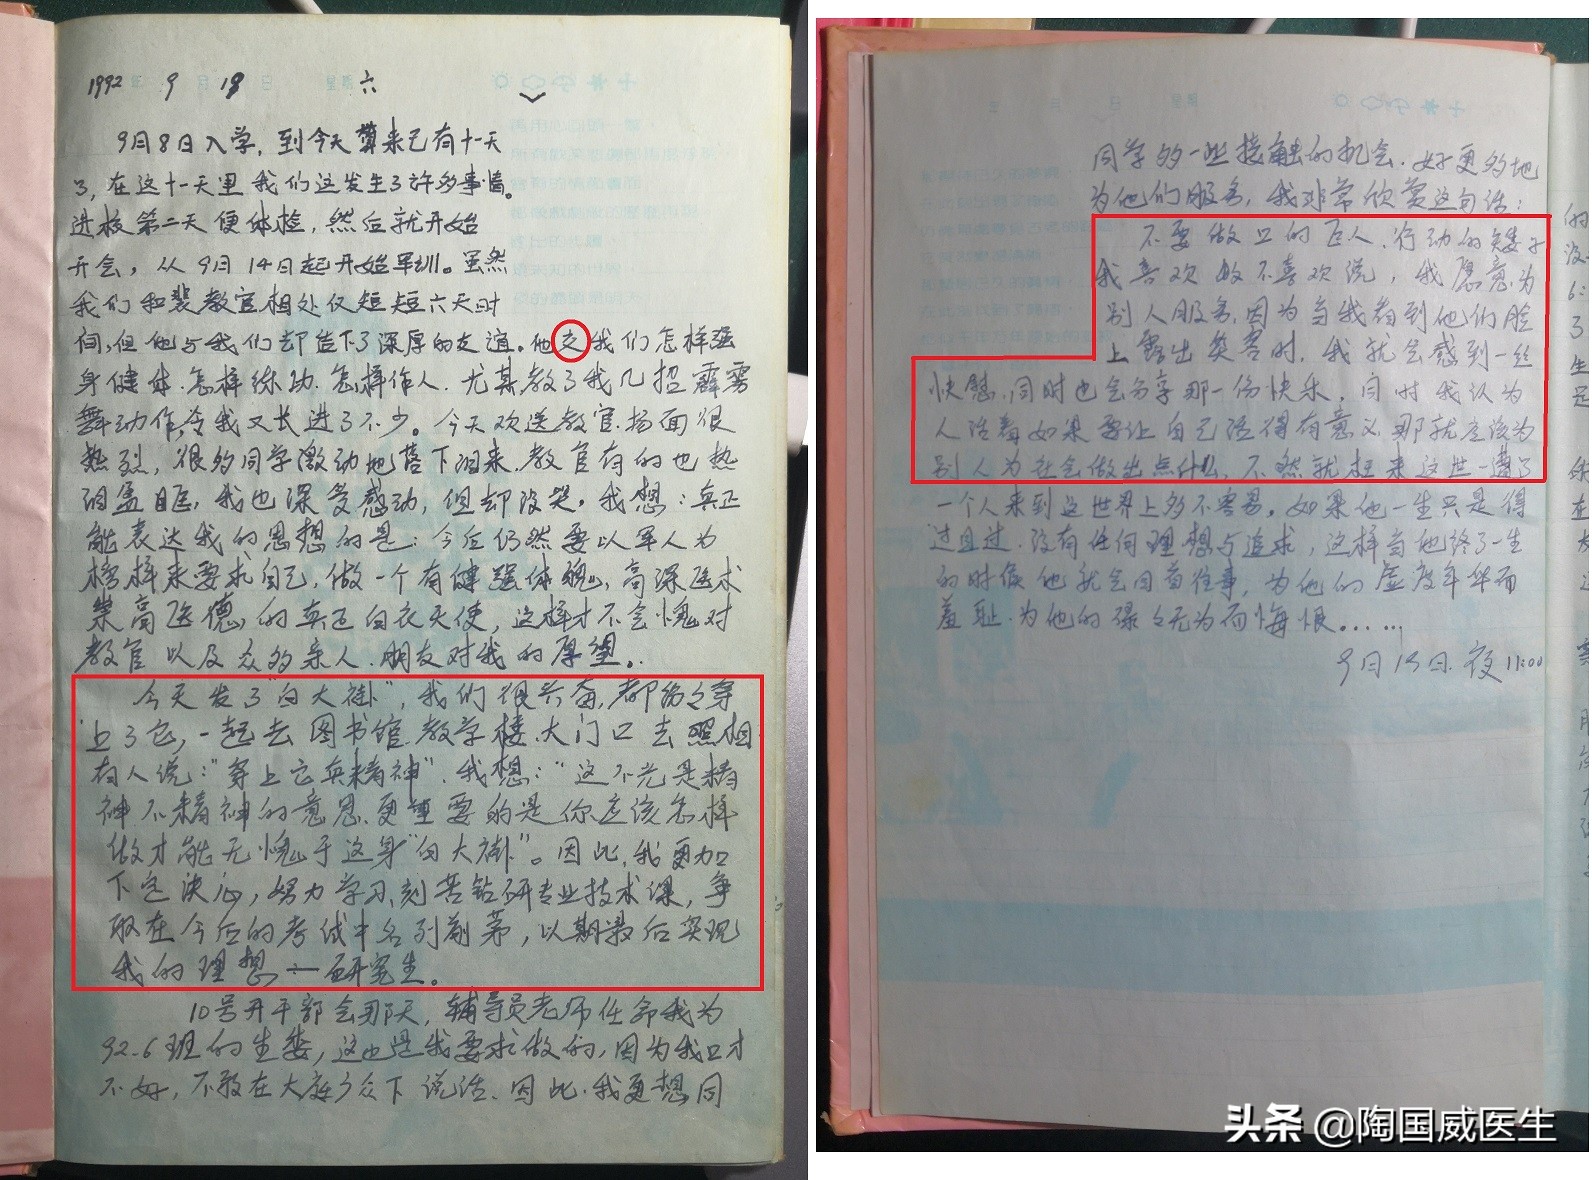 1992 年 9 月 19 日 星期 六
9月8日入学，到今天算来已有十一天
了，在这十一天里我们这发生了许多事情。
进校第二天便体检，然后就开始
开会，从9月14日起开始军训。虽然
我们和裴教官相处仅短短六天时
间，但他与我们却结下了深厚的友谊。他交我们怎样强
身健体、怎样练功、怎样作人，尤其教了我几招霹雳
舞动作，令我又长进了不少。今天欢送教官，场面很
热烈，很多同学激动地落下泪来，教官有的也热
泪盈眶，我也深受感动，但却没哭。我想：真正
能表达我的思想的是：今后仍然要以军人为
榜样来要求自己，做一个有健强体魄，高深医术
崇高医德，的真正白衣天使，这样才不会愧对
教官以及众多亲人、朋友对我的厚望。
今天发了“白大褂”，我们很兴奋，都纷纷穿
上了它，一起去图书馆、教学楼、大门口去照相
有人说：“穿上它真精神”，我想：“这不光是精
神不精神的意思，更重要的是你应该怎样
做才能无愧于这身“白大褂”。因此，我更加
下定决心，努力学习，刻苦钻研专业技术课，争
取在今后的考试中名列前茅，以期最后实现
我的理想——研究生。
10号开干部会那天，辅导员老师任命我为
92.6班的生委，这也是我要求做的，因为我口才
不好，不敢在大庭广众下说话，因此，我更想同
同学多一些接触的机会，好更多地
为他们服务，我非常欣赏这句话：
不要做口的巨人、行动的矮子
我喜欢做不喜欢说，我愿意为
别人服务，因为当我看到他们脸
上露出笑容时，我就会感到一丝
快慰，同时也会分享那一份快乐，同时我认为
人活着如果要让自己活得有意义，那就应该为
别人为社会做出点什么，不然就枉来这世一遭了
一个人来到这世界上多不容易，如果他一生只是得
过且过，没有任何理想与追求，这样当他终了一生
的时候他就会回首往事，为他的虚度年华而
羞耻，为他的碌々无为而悔恨……
9月19日 夜11:00
头条 @陶国威医生